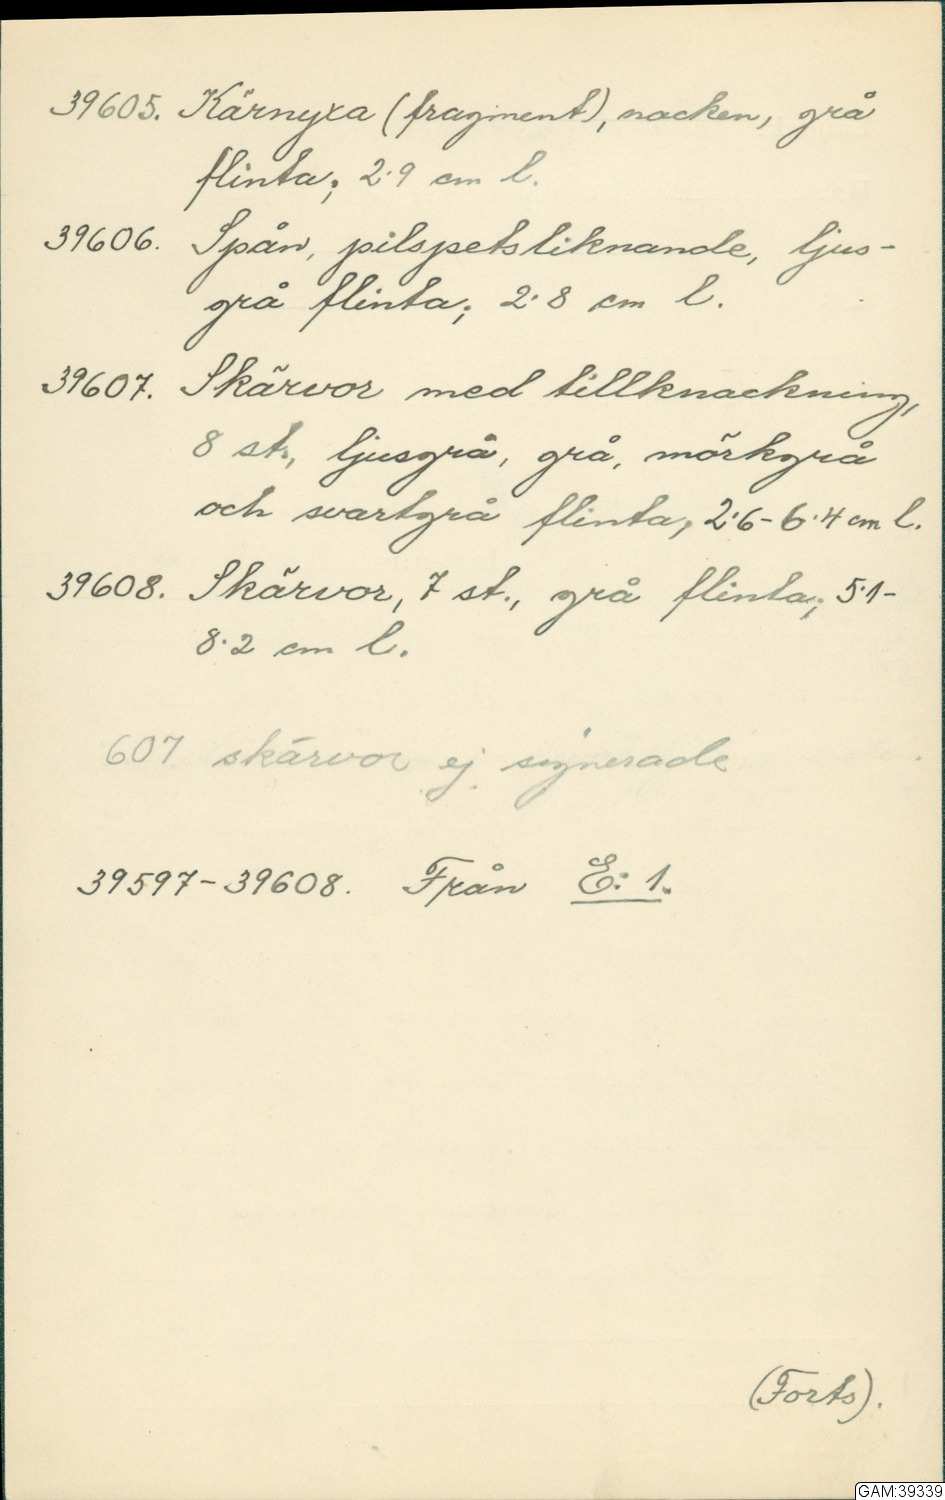 39605. Kärnyxa (fragment), nacken, grå
flinta; 2·9 cm l.
39606. Spån, pilspetsliknande, ljus-
grå flinta; 2·8 cm l.
39607. Skärvor med tillknackning,
8 st., ljusgrå, grå, mörkgrå
och svartgrå flinta; 2·6-6·4 cm l.
39608. Skärvor, 7 st., grå flinta; 5·1-
8·2 cm l.
607 skärvor ej signerade
39597-39608. Från E: 1.
(Forts).
GAM:39339